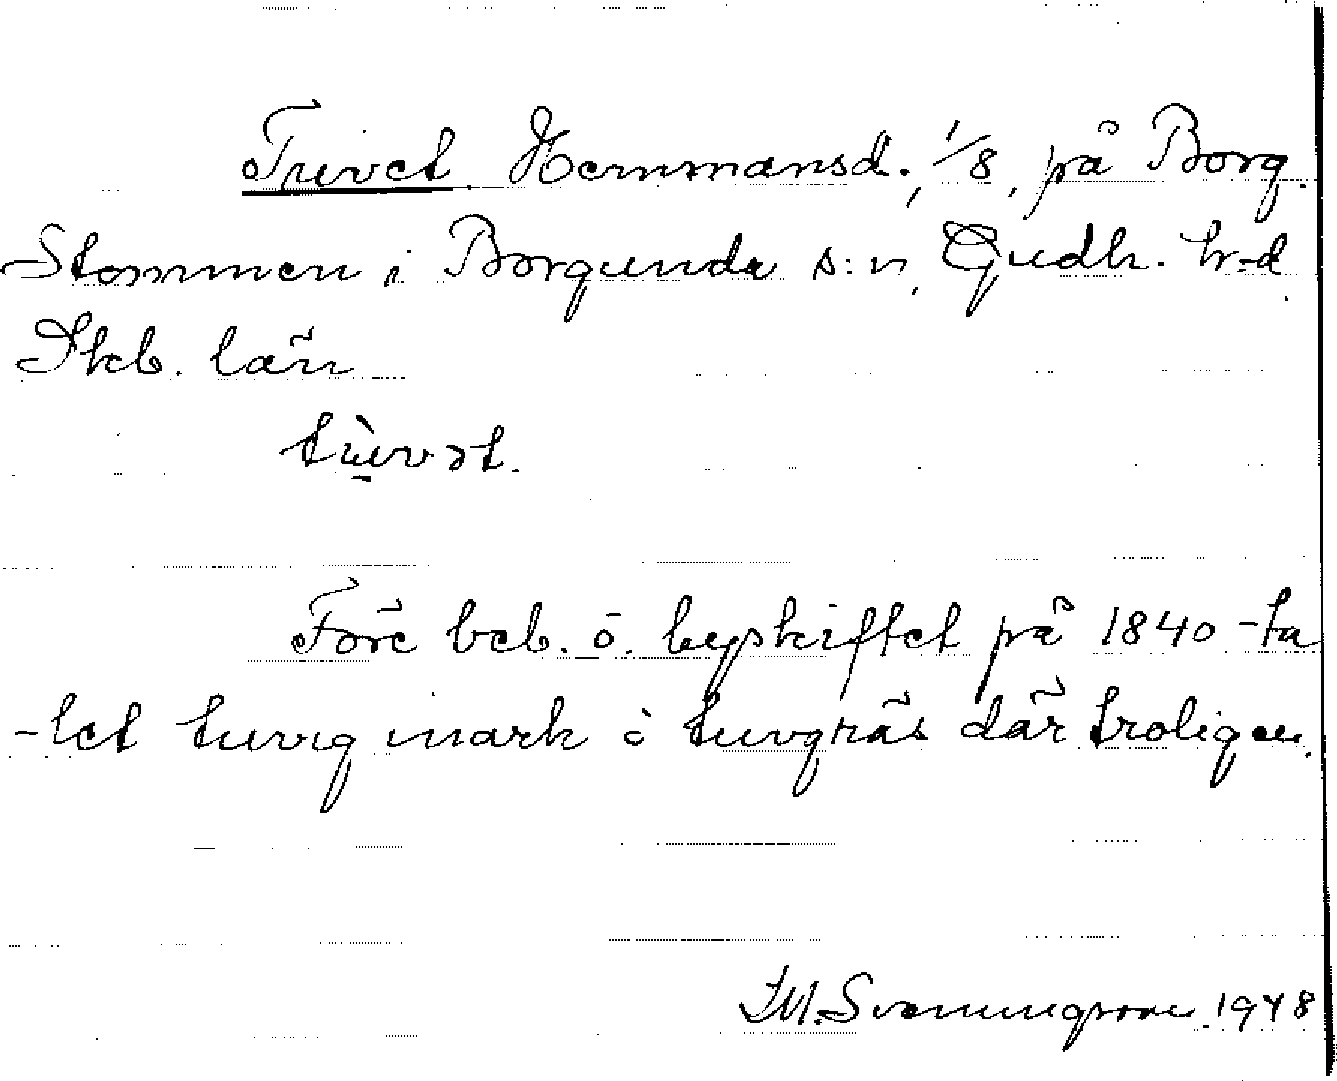 Tuvet. Hemmansd., 1/8, på Borg.
Stommen i Borgunda s:n, Gudh. h-d
Skb. län
tùvət.
Före beb. o. byskiftet på 1840-ta
-let tuvig mark ò tuvgräs där troligen.
Svenningsson. 1948